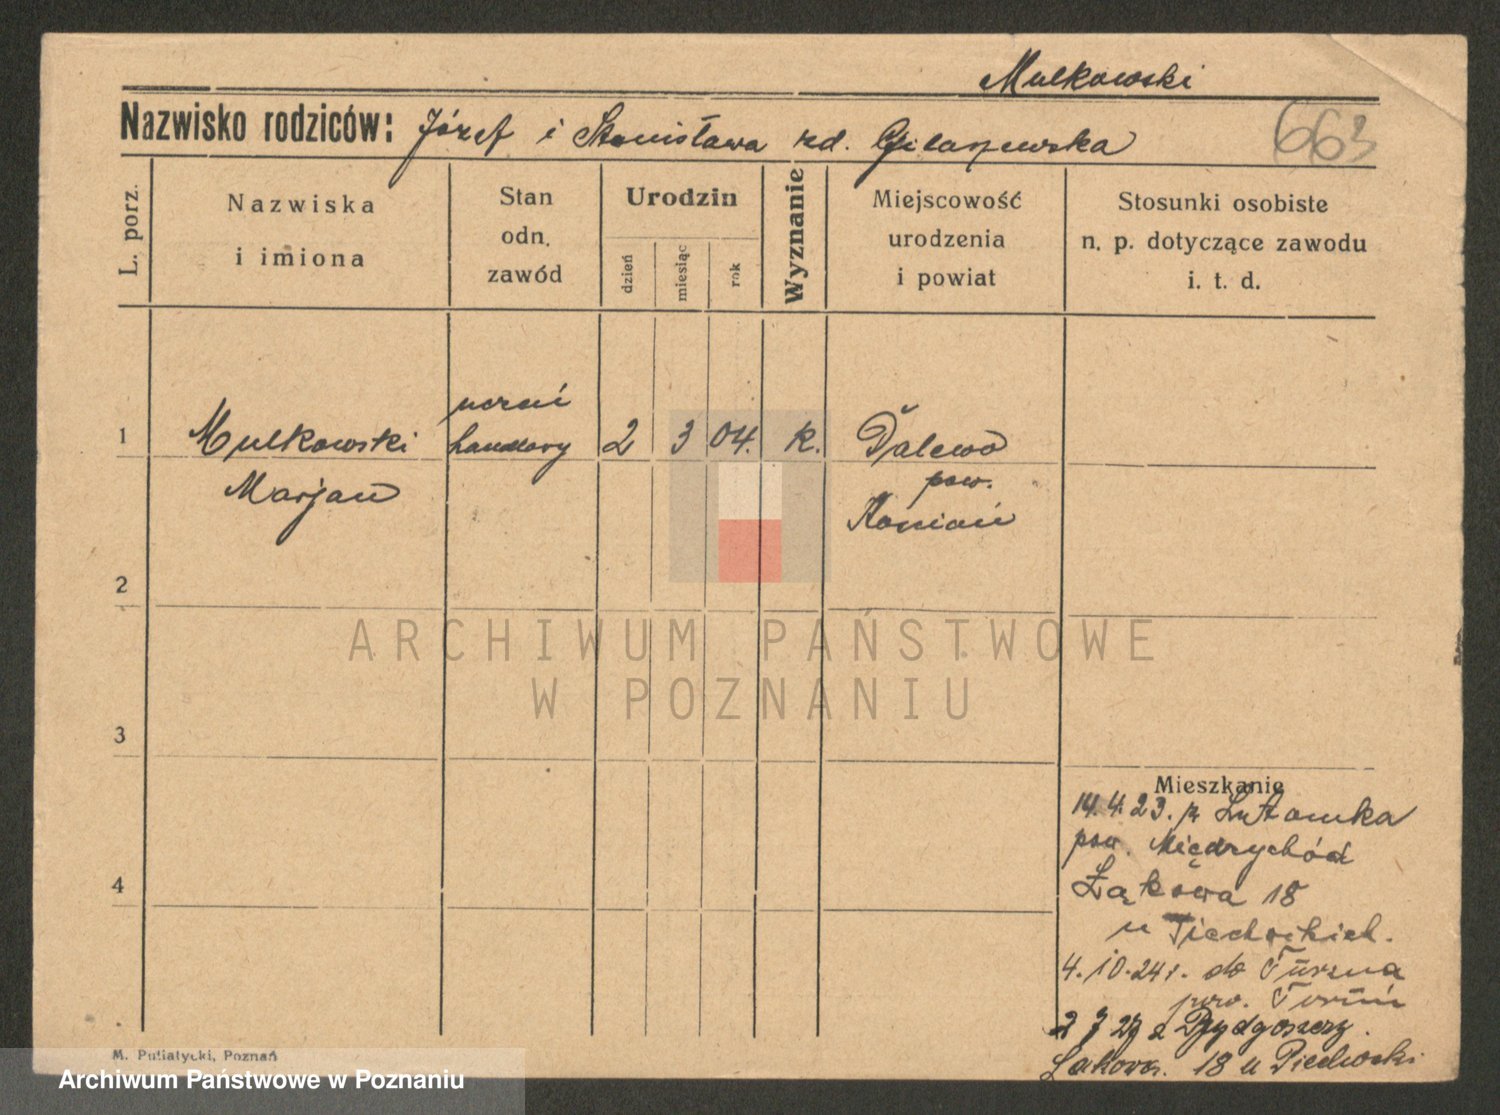 Mulkowski
Nazwisko rodziców: Józef i Stanisława zd.
663
L. porz.
Nazwiska
i imiona
Stan
odn.
zawód
Urodzin
dzień
miesiąc
rok
Wyznanie
Miejscowość
urodzenia
i powiat
Stosunki osobiste
n. p. dotyczące zawodu
i. t. d.
1
Mulkowski
Marjan
uczeń
handlowy
2 3 04. k.
Dalewo
pow.
2
3
4
ARCHIWUM PAŃSTWOWE
W POZNANIU
Mieszkanie
14.4.23. z Lutomka
pow. Międzychód
Łąkowa 18
u
4.10.24r. do Turzna
pow. Toruń
2 7 27 z Bydgoszczy.
Łąkowa 18 u Piechocki
M. Putiatycki, Poznań
Archiwum Państwowe w Poznaniu